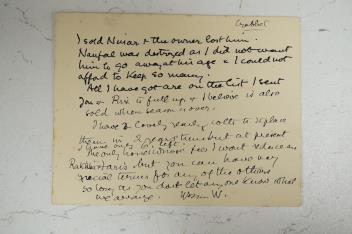 Crabbet
I sold Nizar & the owner lost him.
Naufal was destroyed as I did not want
him to go away at his age & I could not
afford to keep so many.
All I have got are on the list I sent
you & Rix is full up & I believe is also
sold when season's over.
I have 2 lovely yearly colts to replace
them in 2 years time but at present
I have only 6 left.
the only horse whose fees I want reduce are
but you can have very
special terms for any of the others
so long as you dont let any one know what
we arrange. W.